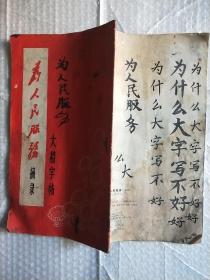 为人民服务
摘录
为人民服务
大楷字帖
为什么大字写不好
为什么大字写不好好
为什么大字写不好
为人民服务
么大